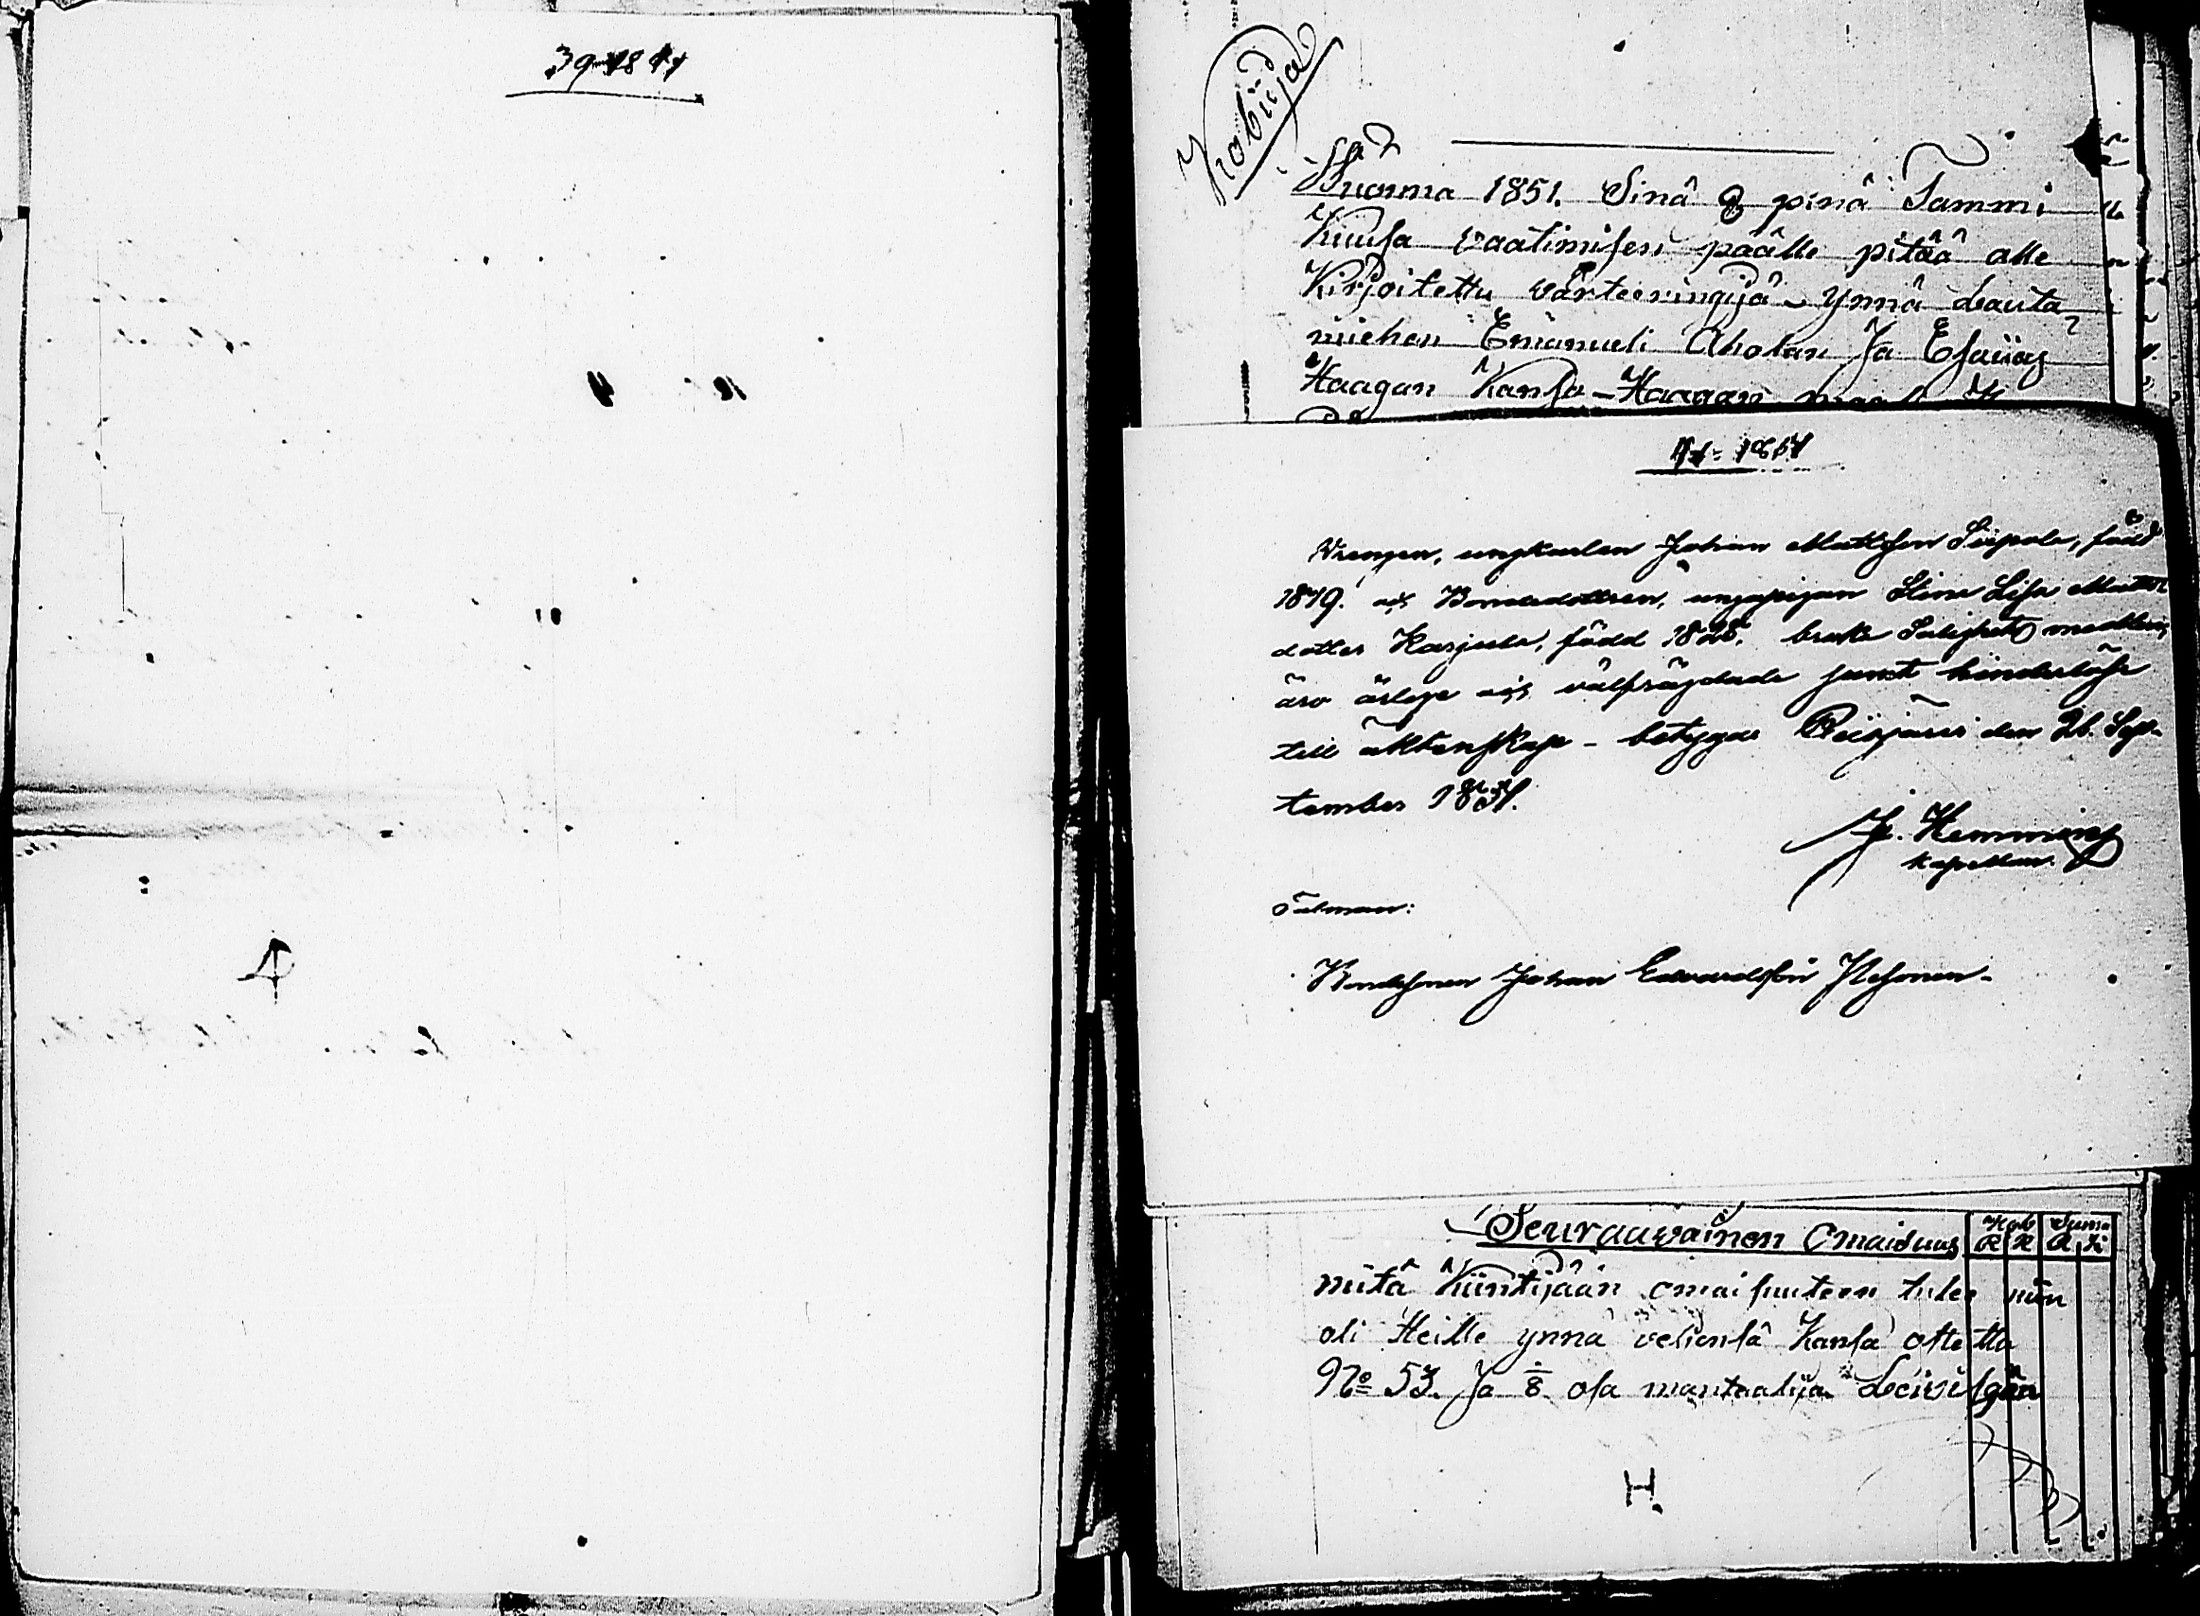 39 1841
Kobiija
Wuonna 1851. Sinä 8 pänä Tammi
Kuusa vaatimisen päälle pitää alle
Kirjoitettu värteeringijä ynnä Lauta
miehen Emanueli Aholan Ja Esaiias
Haagan Kansa - Haagan
41 - 1851
Drengen, ungkarlen Johan Mattsson Sirpola, född
1819. och Bondedottren, ungapigan Stina Lisa Matts
dotter Karjula, född 1828. bruka Salighets medlen,
äro ärlige och välfrägdade samt hinderlöse
till äktenskap - betygar Reisjärvi den 26. Sep-
tember 1851.
H. Hemming
Kapellan.
Talman:
Bondesonen Johan Edvardsson Ilkonen.
Seuraawainen Omaisuus
Hob Sum
R K R K
mitä Kiintijään omaisuuteen tulee niin
oli Heille ynnä veliensä Kansa otettu
No 53. Ja 1/8 osa mantaalija
H.